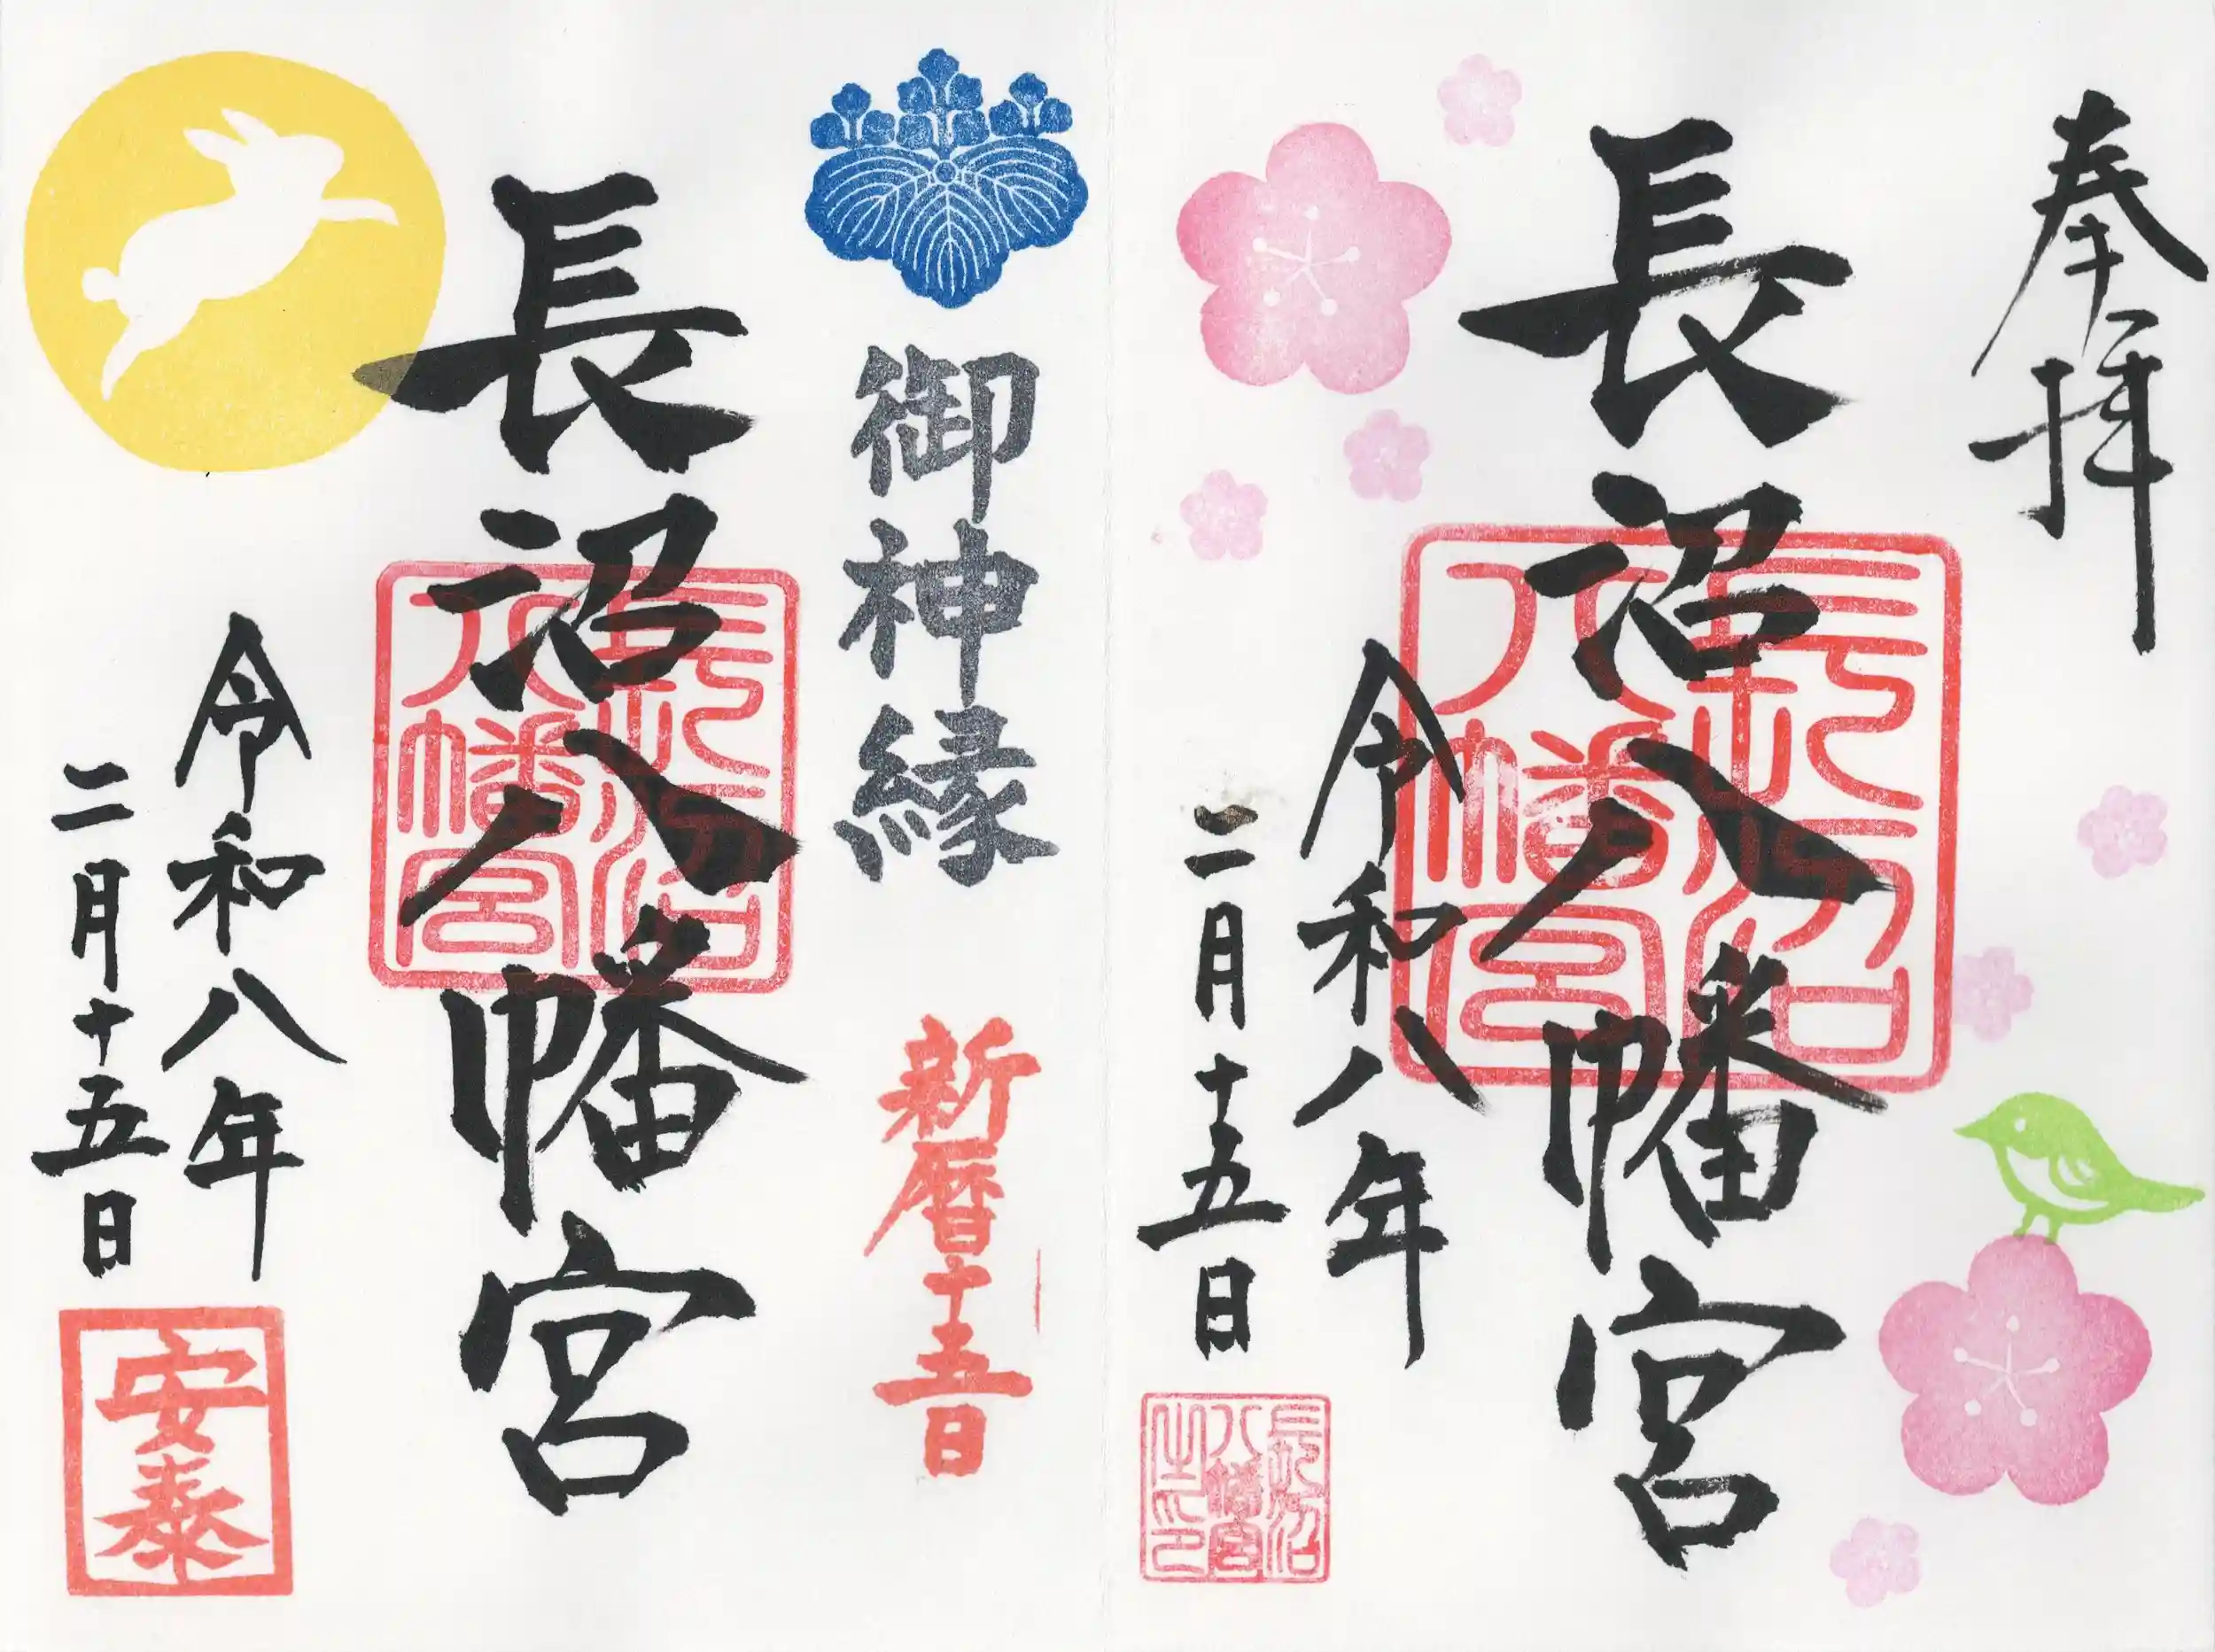 奉拝
長沼八幡宮
長沼八幡宮
令和八年
二月十五日
長沼八幡宮之印
御神縁
新暦十五日
長沼八幡宮
長沼八幡宮
令和八年
二月十五日
安泰